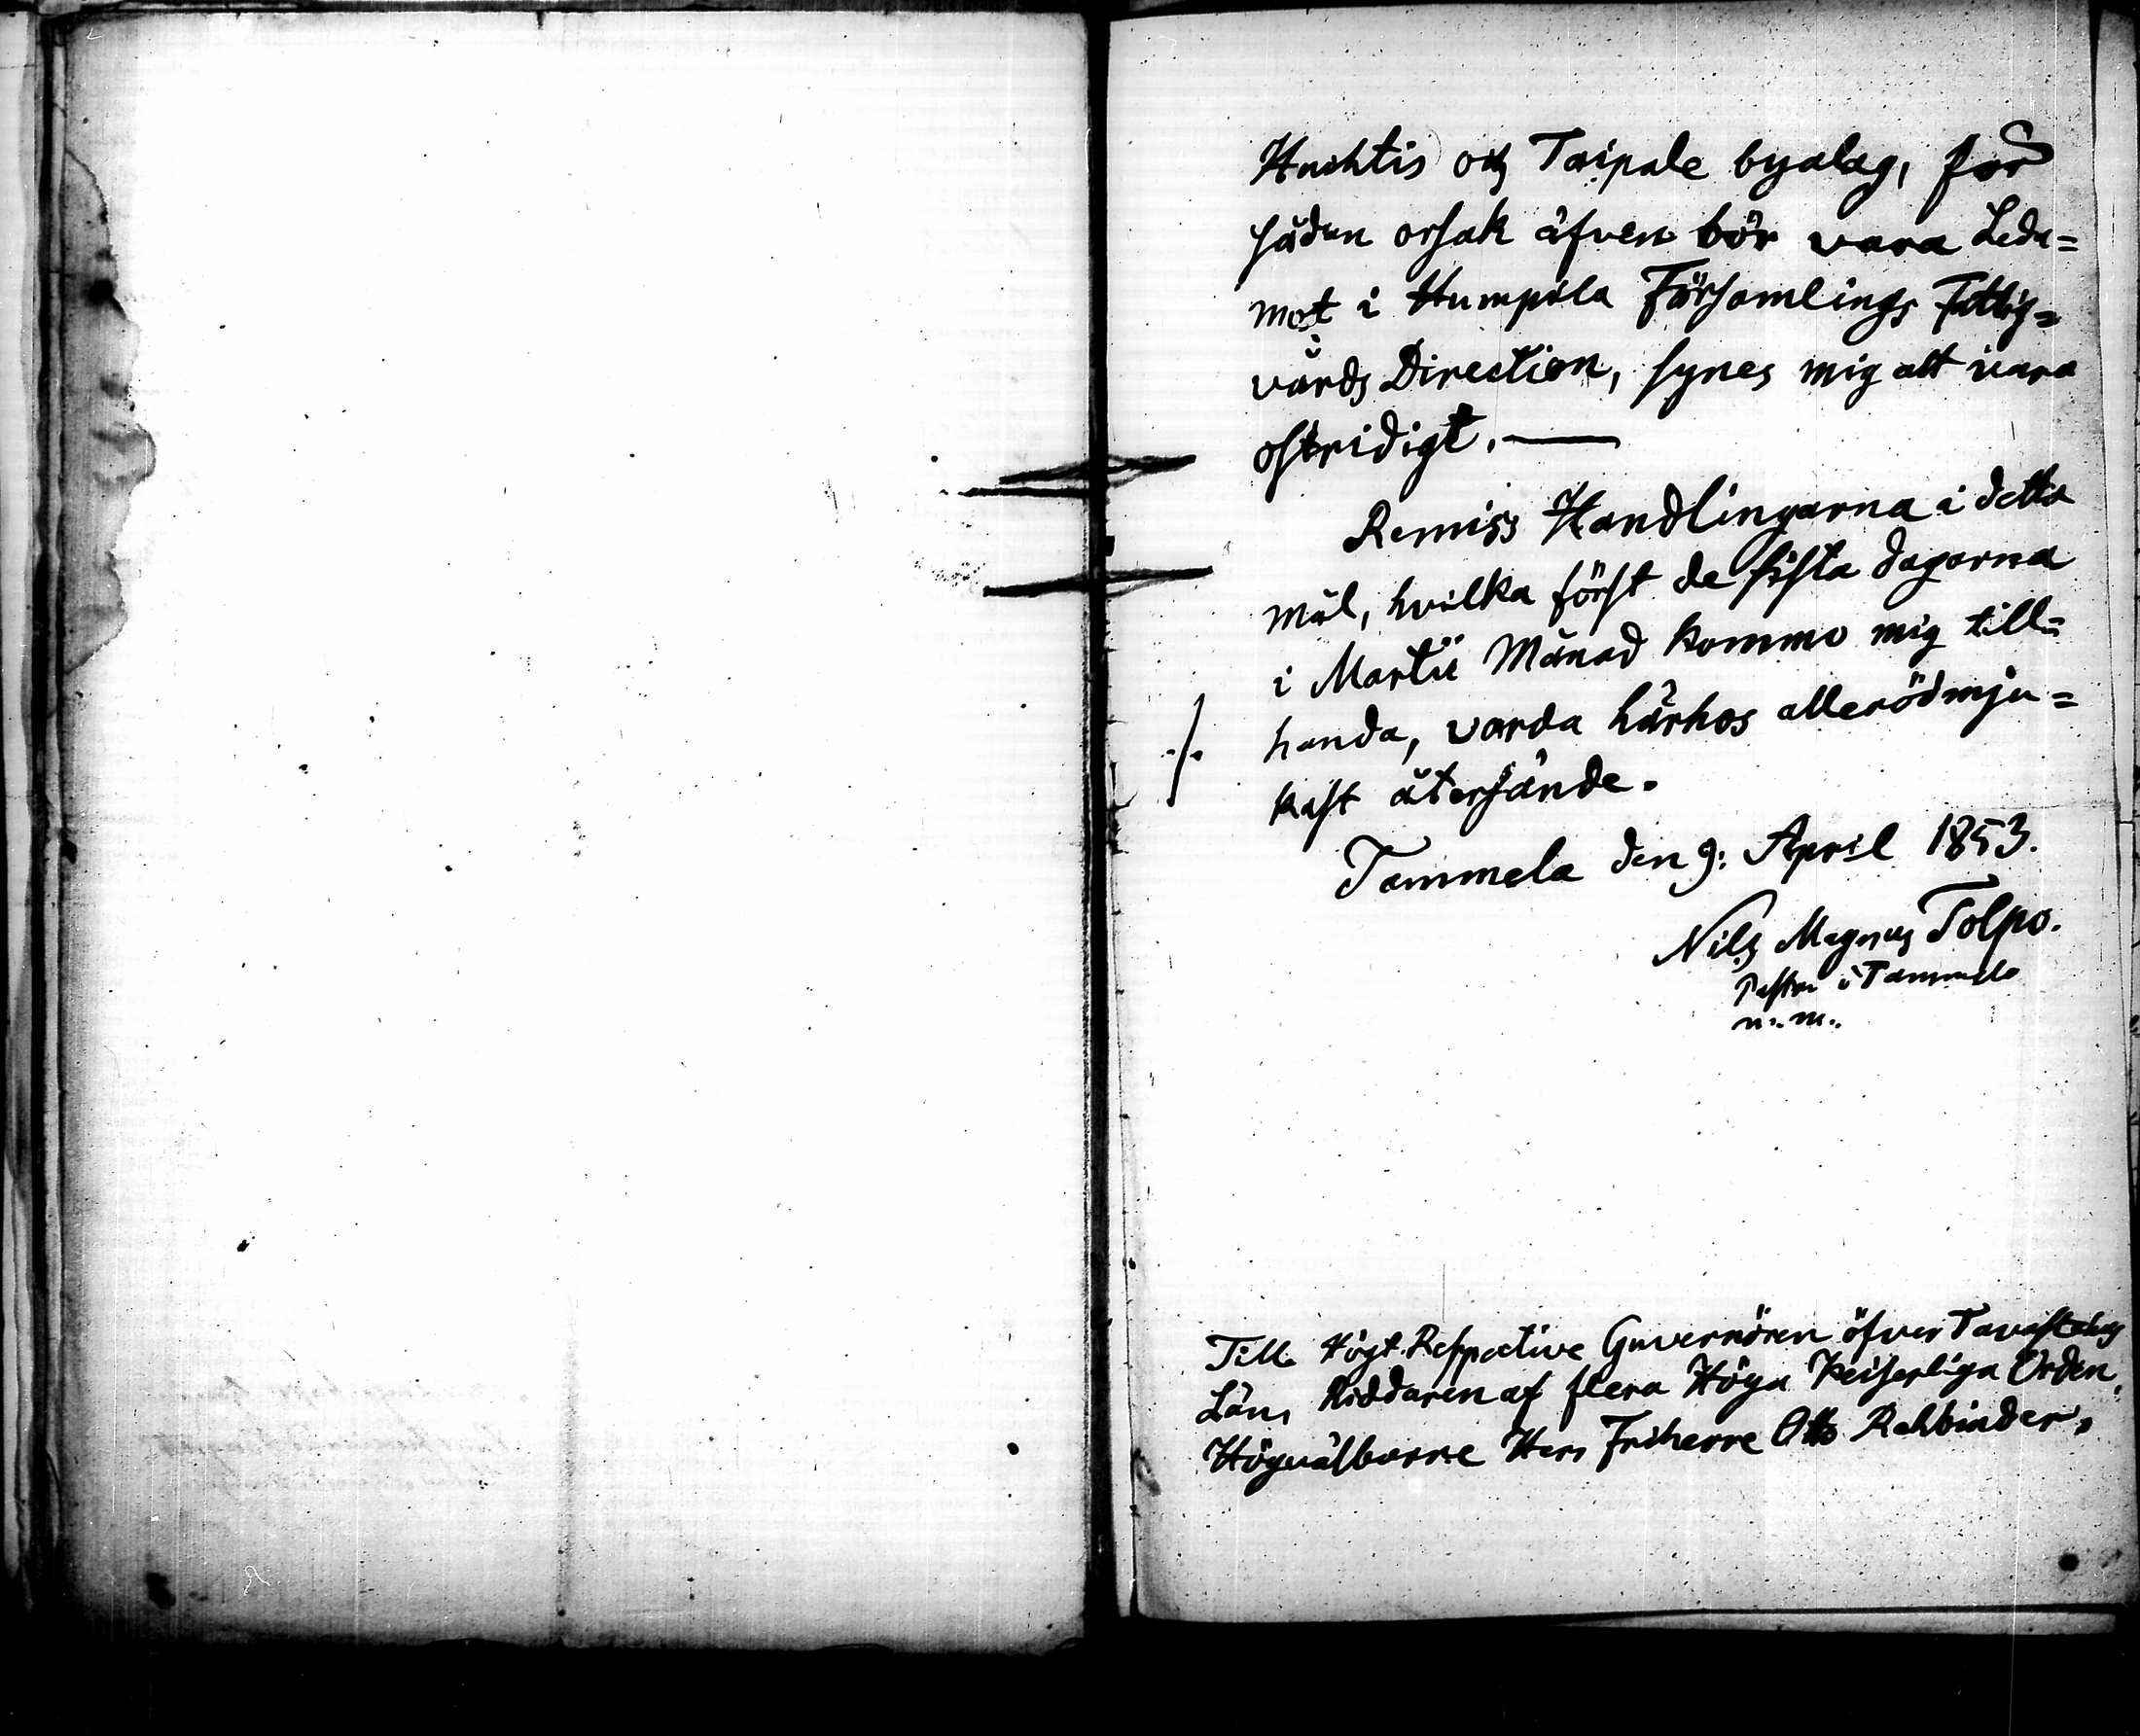 Huchtis och Taipale byalag, för
sådan orsak äfven bör vara Leda=
mot i Humpila Församlings Fattig=
vårds Direction, synes mig att vara
ostridigt. —
Remiss Handlingarna i detta
mål, hvilka först de sista dagarna
i Martii Månad kommo mig till=
./. handa, varda härhos allerödmju=
kast återsände.
Tammela den 9: April 1853.
Nils Magnus Tolpo.
Pastor i Tammela
m. m.
Till Högt Respective Guvernören öfver Tavastehus
Län, Riddaren af flera Höga Keiserliga Orden,
Högvälborne Herr Friherre Otto Rehbinder,